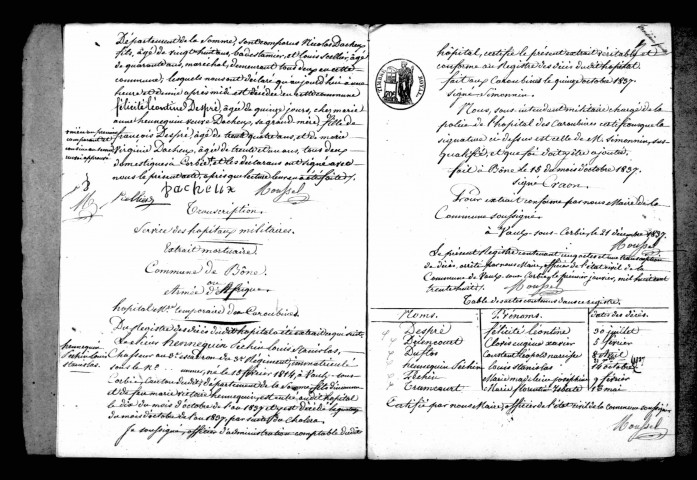 Département de la Somme, sont comparus Nicolas Dacheux
fils, âgé de vingt huit ans, badestamier, et Louis
âgé de quarante ans, maréchal, demeurant tous deux en cette
commune, lesquels nous ont déclaré qu'aujourd'hui à une
heure et demie après midi est décédée en cette commune
félicité léontine Despré, âgée de quinze jours, chez marie
anne hennequin veuve Dacheux, sa grand mère, fille de
françois Despré, âgé de trente quatre ans, et de marie
virginie Dacheux, âgée de trente et un ans, tous deux
domestiques à Corbie, et les déclarans ont signé avec
nous le présent acte, après que lecture leur a été faite.
Dacheux
Moussel
Transcription.
Service des hopitaux militaires.
Extrait mortuaire.
Commune de Bône.
ou
Armée d'Afrique
hopital temporaire des Caroubins.
Du Registre des décès dudit hopital a été extrait ce qui suit,
hennequin
Péchin louis
stanislas.
Le sieur Hennequin Péchin Louis Stanislas,
Chasseur au escadron du 3e Régiment, immatriculé
sous le No né le 18 février 1814, à Vaux-sous-
Corbie, Canton dudit, département de la Somme, fils d'inconnu
et de feu marie victoire hennequin, est entré audit hopital
le dix du mois d'octobre de l'an 1837, et y est décédé le quatorze
du mois d'octobre de l'an 1837, par suite de choléra
Je soussigné, officier d'administration comptable dudit
hôpital, certifie le présent extrait véritable et
conforme au Registre des décès dudit hopital
fait aux Caroubins le quinze octobre 1837.
signé Simonnin.
Nous, sous-intendant militaire chargé de la
police de l'hopital des Caroubins certifions que la
signature ci dessus est celle de M. Simonnin, sus-
qualifié, et que foi doit y être ajoutée.
fait à Bône le 15 du mois d'octobre 1837.
signé Craon.
Pour extrait conforme par nous Maire de la
Commune soussigné
à Vaux-sous-Corbie, le 21 décembre 1837.
Moussel
Le présent Registre contenant sept actes et une transcription
de décès, arrêté par nous Maire, officier de l'état civil de la
Commune de Vaux-sous-Corbie, le premier janvier, mil huit cent
trente huit.
Moussel
Table des actes contenus dans ce registre.
Noms. Prénoms. Dates des décès.
Despré félicité léontine 30 juillet
Dilencourt Clovis eugène xavier 5 février
Duflos Constant léopold narcisse 8 avril
hennequin Péchin louis stanislas 14 octobre
Péchin Marie madeleine joséphine 9 février
Trancourt Marie florentine 2 mai
Certifié par nous Maire, officier de l'état civil de la commune soussigné
Moussel